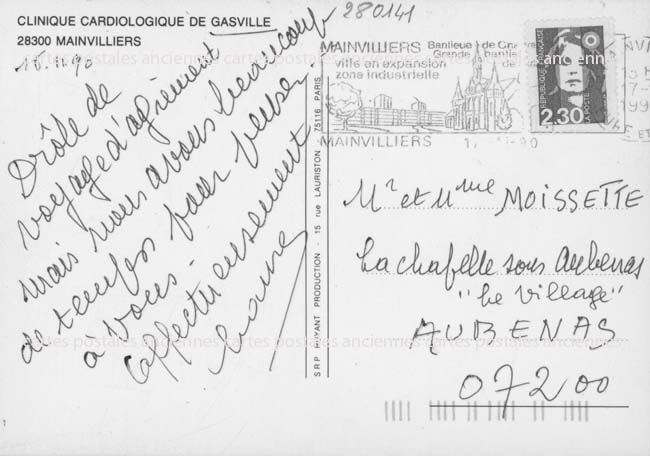 CLINIQUE CARDIOLOGIQUE DE GASVILLE
28300 MAINVILLIERS
15.11.90
Drôle de
voyage d'agrément
mais nous avons beaucoup
de temps pour penser
à vous.
affectueusement
280141
MAINVILLIERS Banlieue de
ville en expansion Grande banlieue
zone industrielle de
MAINVILLIERS 90
REPUBLIQUE FRANÇAISE
LA POSTE
2,30
SRP HUYANT PRODUCTION - 15 rue LAURISTON 75116 PARIS
Mr et Mme MOISSETTE
La chapelle sous Aubenas
"Le Village"
AUBENAS
07200
cartes postales anciennes cartes postales anciennes cartes postales anciennes
cartes postales anciennes cartes postales anciennes cartes postales anciennes